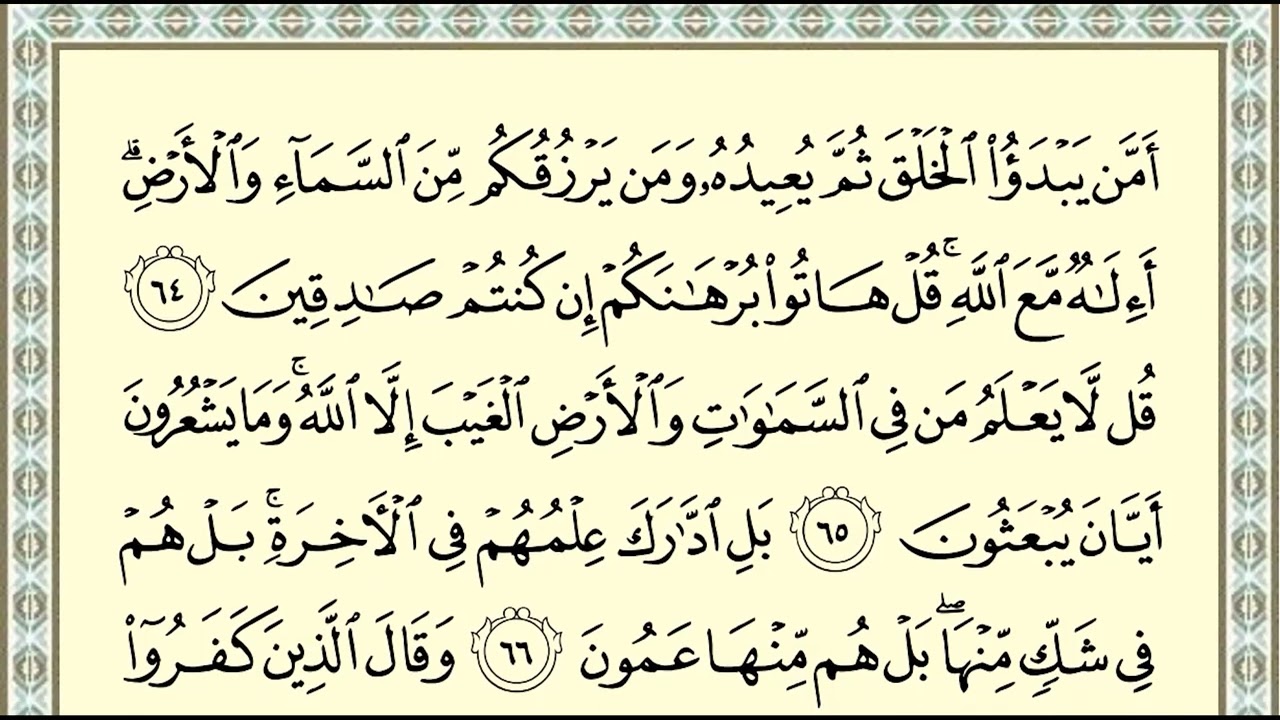 أَمَّن يَبْدَؤُاْ ٱلْخَلْقَ ثُمَّ يُعِيدُهُۥ وَمَن يَرْزُقُكُم مِّنَ ٱلسَّمَآءِ وَٱلْأَرْضِۗ
أَءِلَٰهٌ مَّعَ ٱللَّهِۚ قُلْ هَاتُواْ بُرْهَٰنَكُمْ إِن كُنتُمْ صَٰدِقِينَ ٦٤
قُل لَّا يَعْلَمُ مَن فِي ٱلسَّمَٰوَٰتِ وَٱلْأَرْضِ ٱلْغَيْبَ إِلَّا ٱللَّهُۚ وَمَا يَشْعُرُونَ
أَيَّانَ يُبْعَثُونَ ٦٥ بَلِ ٱدَّٰرَكَ عِلْمُهُمْ فِي ٱلْأَخِرَةِۚ بَلْ هُمْ
فِي شَكٍّ مِّنْهَاۖ بَلْ هُم مِّنْهَا عَمُونَ ٦٦ وَقَالَ ٱلَّذِينَ كَفَرُوٓاْ